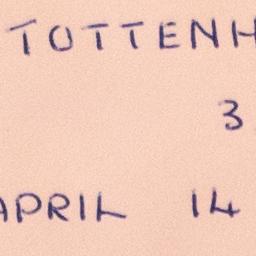 TOTTENH
3
APRIL 14